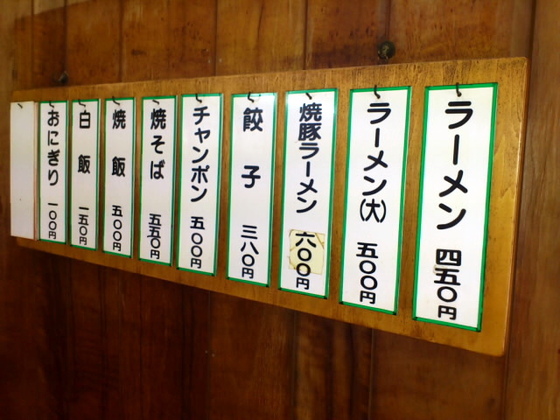 ラーメン 四五〇円
ラーメン(大) 五〇〇円
焼豚ラーメン 六〇〇円
餃子 三八〇円
チャンポン 五〇〇円
焼そば 五五〇円
焼飯 五〇〇円
白飯 一五〇円
おにぎり 一〇〇円